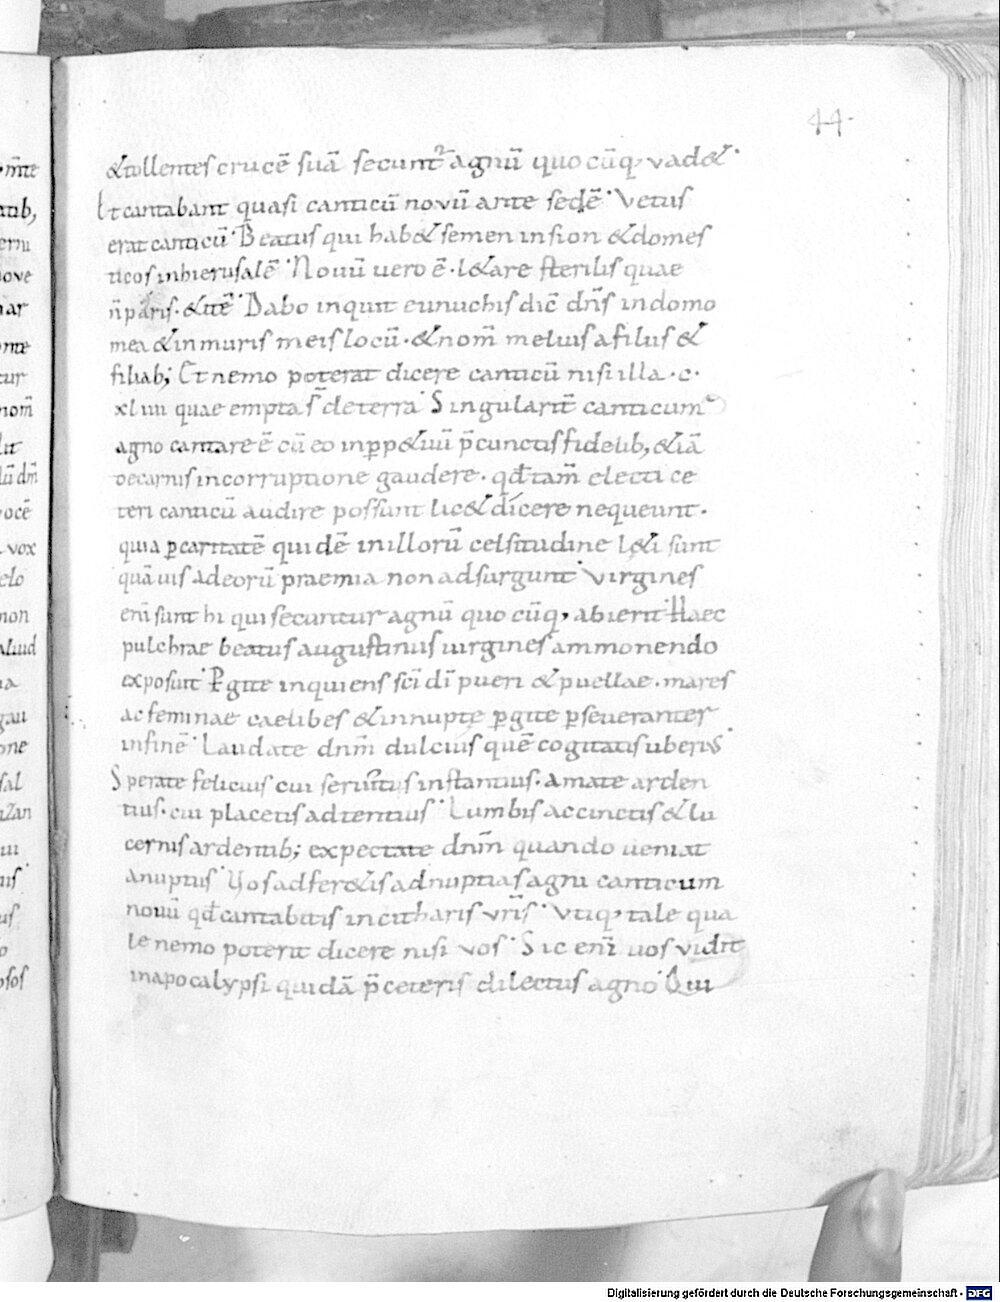 44.
&tollentes crucē suā secunt᷑ agnū quo cūq; vad&.
Et cantabant quasi canticū novū ante sedē. Vetus
erat canticū. Beatus qui hab& semen in sion & domes
ticos in hierusalē. Novū uero ē. l&are sterilis quae
n̄ paris. & itē. Dabo inquit eunuchis dic̄ dn̄s in domo
mea & in muris meis locū. & nom̄ melius a filiis &
filiab; Et nemo poterat dicere canticū nisi illa .c.
xl iiii quae empta s̄ de terra. Singularit̄ canticum
agno cantare ē cū eo in pp&uū p̄ cunctis fidelib; & iā
de carnis incorruptione gaudere. qđ tam̄ electi ce
teri canticū audire possunt lic& dicere nequeunt.
quia p caritatē quidē in illorū celsitudine l&i sunt
quāuis ad eorū praemia non adsurgunt. Virgines
eni sunt hi qui secuntur agnū quo cūq; abierit. Haec
pulchrae beatus augustinus uirgines ammonendo
exposuit. Pgite inquiens sc̄i dī pueri & puellae. mares
ac feminae caelibes & innuptę pgite pseueranter
in finē. Laudate dnm̄ dulcius quē cogitatis uberius.
Sperate felicius cui seruitis instantius. amate arden
tius. cui placetis adtentius. Lumbis accinctis & lu
cernis ardentib; expectate dnm̄ quando ueniat
a nuptiis. Vos adfer&is ad nuptias agni canticum
nouū qđ cantabitis in citharis vr̄is. Vtiq; tale qua
le nemo poterit dicere nisi vos. Sic eni uos vidit
in apocalypsi quidā p̄ ceteris dilectus agno. Qui
Digitalisierung gefördert durch die Deutsche Forschungsgemeinschaft - DFG